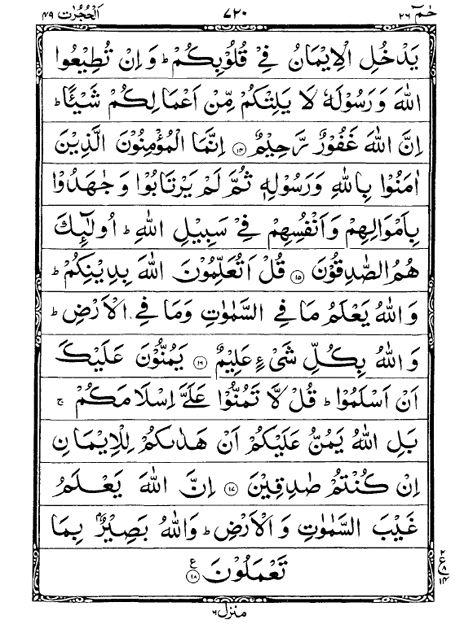 حٰمٓ ۲۶ ۷۲۰ اَلْحُجُرٰت ۴۹
يَدْخُلِ الْاِيْمَانُ فِيْ قُلُوْبِكُمْ ؕ وَاِنْ تُطِيْعُوا
اللهَ وَرَسُوْلَهٗ لَا يَلِتْكُمْ مِّنْ اَعْمَالِكُمْ شَيْـًٔا ؕ
اِنَّ اللهَ غَفُوْرٌ رَّحِيْمٌ ۝۱۴ اِنَّمَا الْمُؤْمِنُوْنَ الَّذِيْنَ
اٰمَنُوْا بِاللهِ وَرَسُوْلِهٖ ثُمَّ لَمْ يَرْتَابُوْا وَجٰهَدُوْا
بِاَمْوَالِهِمْ وَاَنْفُسِهِمْ فِيْ سَبِيْلِ اللهِ ؕ اُولٰٓئِكَ
هُمُ الصّٰدِقُوْنَ ۝۱۵ قُلْ اَتُعَلِّمُوْنَ اللهَ بِدِيْنِكُمْ ؕ
وَاللهُ يَعْلَمُ مَا فِي السَّمٰوٰتِ وَمَا فِي الْاَرْضِ ؕ
وَاللهُ بِكُلِّ شَيْءٍ عَلِيْمٌ ۝۱۶ يَمُنُّوْنَ عَلَيْكَ
اَنْ اَسْلَمُوْا ؕ قُلْ لَّا تَمُنُّوْا عَلَيَّ اِسْلَامَكُمْ ۚ
بَلِ اللهُ يَمُنُّ عَلَيْكُمْ اَنْ هَدٰىكُمْ لِلْاِيْمَانِ
اِنْ كُنْتُمْ صٰدِقِيْنَ ۝۱۷ اِنَّ اللهَ يَعْلَمُ
غَيْبَ السَّمٰوٰتِ وَالْاَرْضِ ؕ وَاللهُ بَصِيْرٌۢ بِمَا
تَعْمَلُوْنَ ۝۱۸ ع
۲
ع ۸
۱۴
منزل ۶